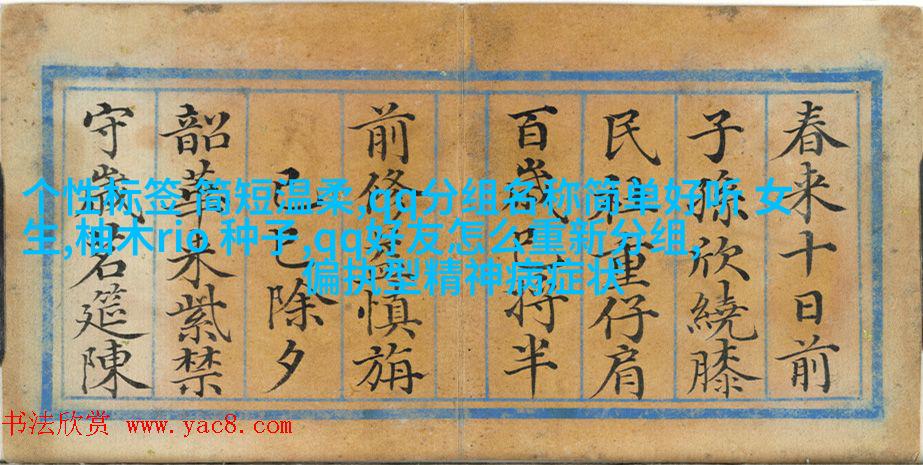 春来十日前
子孫欣繞膝
民社重仔肩
百歲将半
前修慎旃
己巳除夕
韶華来紫禁
守歲茗筵陳
个性标签 简短温柔,qq分组名称简单好听 女
生,柚木rio 种子,qq好友怎么重新分组,
偏执型精神病症状
书法欣赏 www.yac8.com